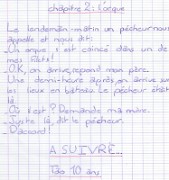 chapitre 2: L'orque
Le lendemain matin un pêcheur nous
appelle et nous dit:
_Un orque s'est coincé dans un de
mes filets!
_O.K, on arrive, répond mon père.
Une demi-heure après on arrive sur
les lieux en bateau. Le pêcheur était
là
_Où est-t'? Demande ma mère.
_Juste là dit le pêcheur.
_D'accord!
A SUIVRE...
Téo 10 ans